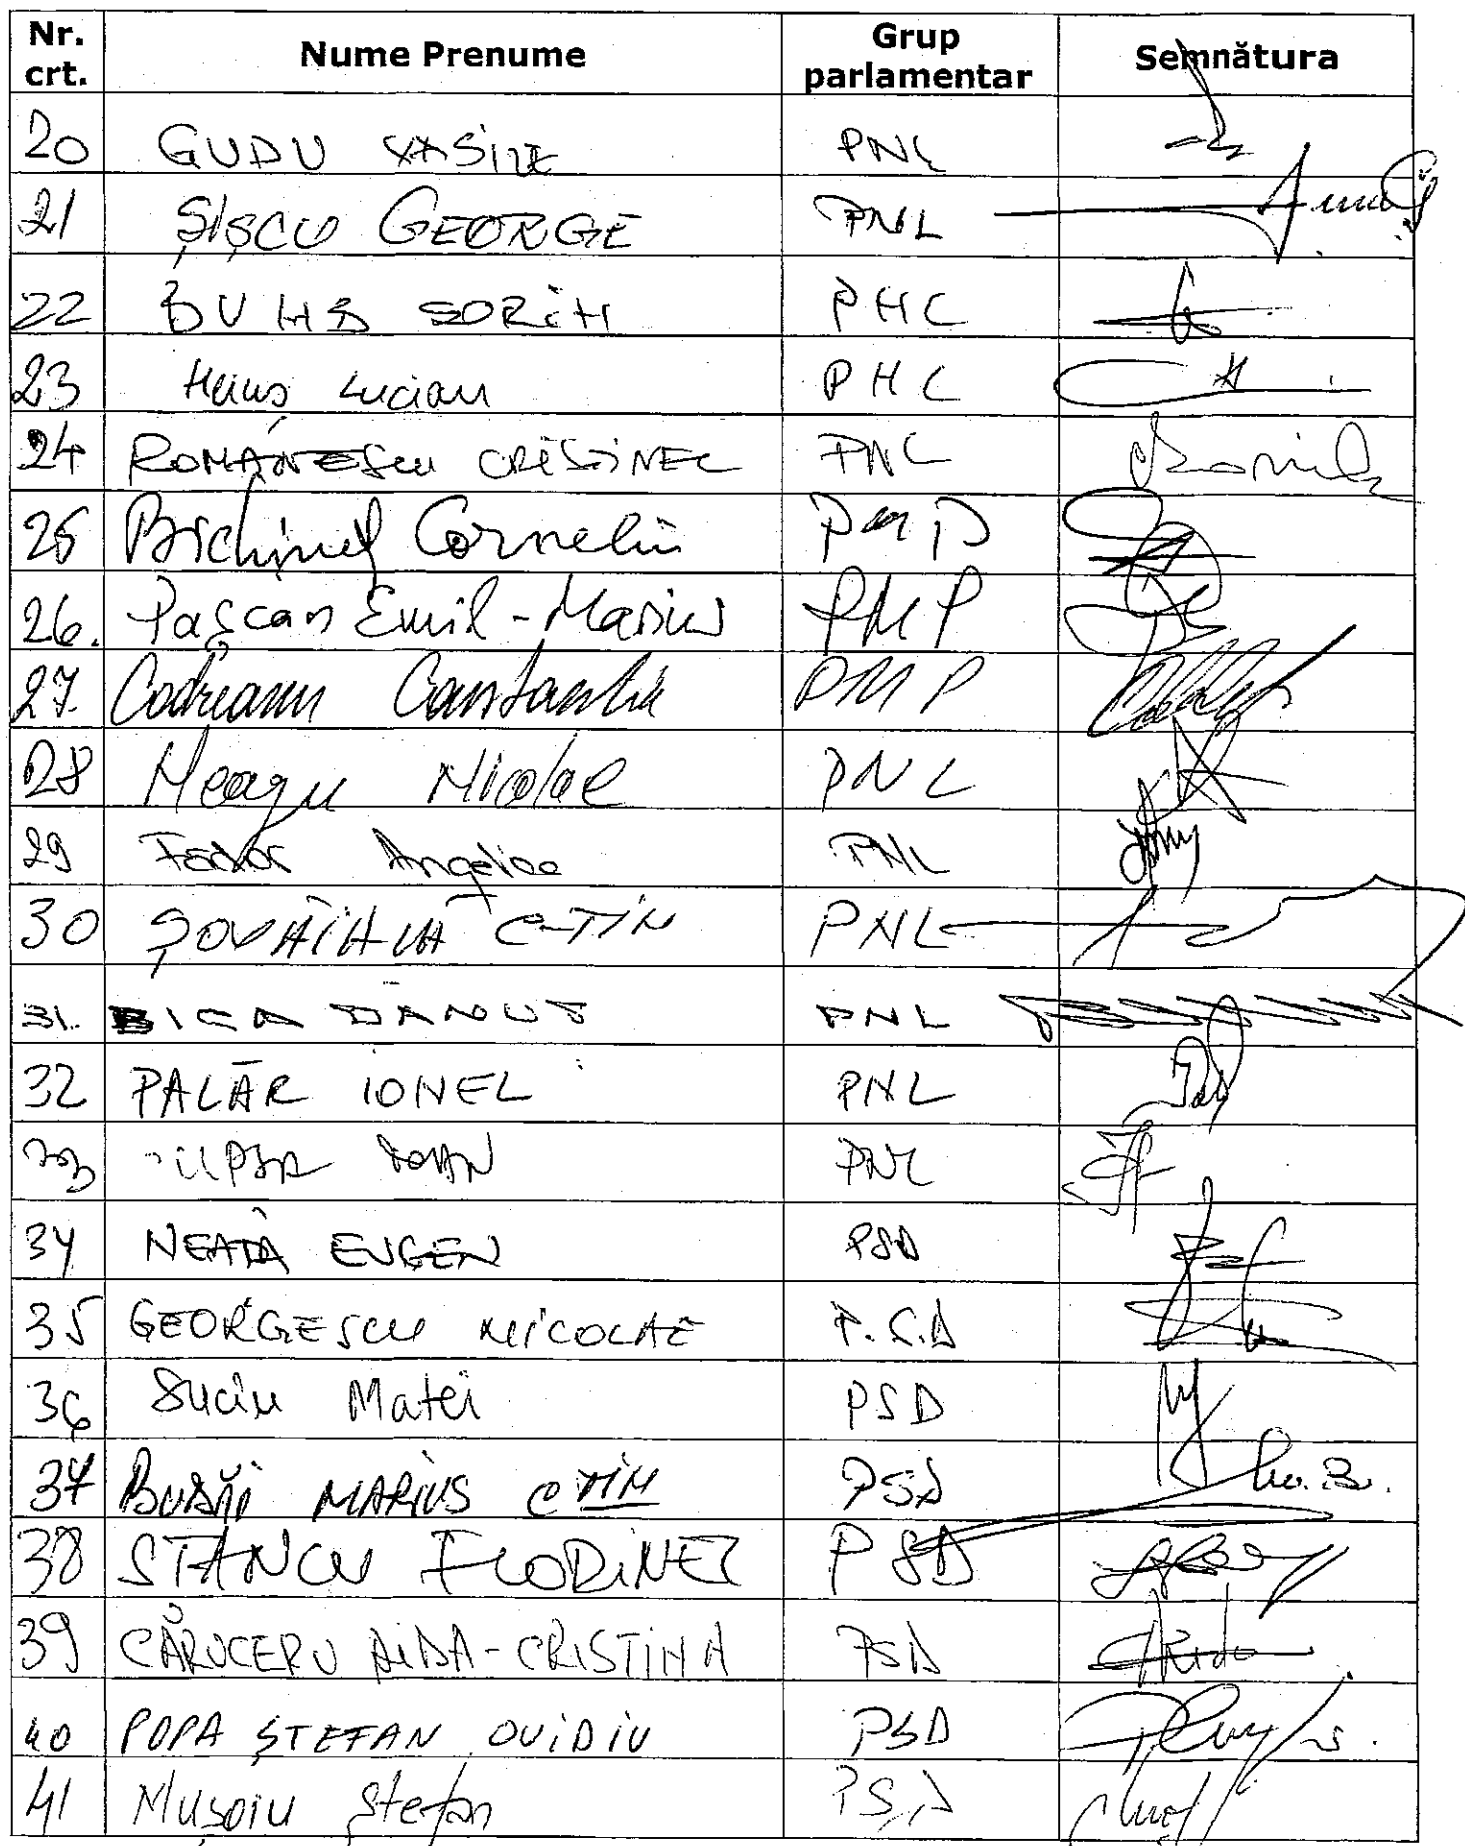 Nr. crt. Nume Prenume Grup parlamentar Semnătura
20 GUDU VASILE PNL
21 ȘIȘCU GEORGE PNL
22 BUMB SORIN PNL
23 Heiuș Lucian PNL
24 ROMÂNESCU CRISTINEL PNL
25 Bichineț Corneliu PMP
26. Pașcan Emil-Marius PMP
27. Codreanu Constantin PMP
28 Neagu Nicolae PNL
29 Fodor Angelica PNL
30 ȘOVĂIALĂ C-TIN PNL
31. BICA DĂNUȚ PNL
32 PALĂR IONEL PNL
33 CUPȘA IOAN PNL
34 NEAȚĂ EUGEN PSD
35 GEORGESCU NICOLAE P.S.D
36 Suciu Matei PSD
37 MARIUS CTIN PSD
38 STANCU FLORINEL PSD
39 CĂRUCERU AIDA-CRISTINA PSD
40 POPA ȘTEFAN OVIDIU PSD
41 Mușoiu Ștefan PSD